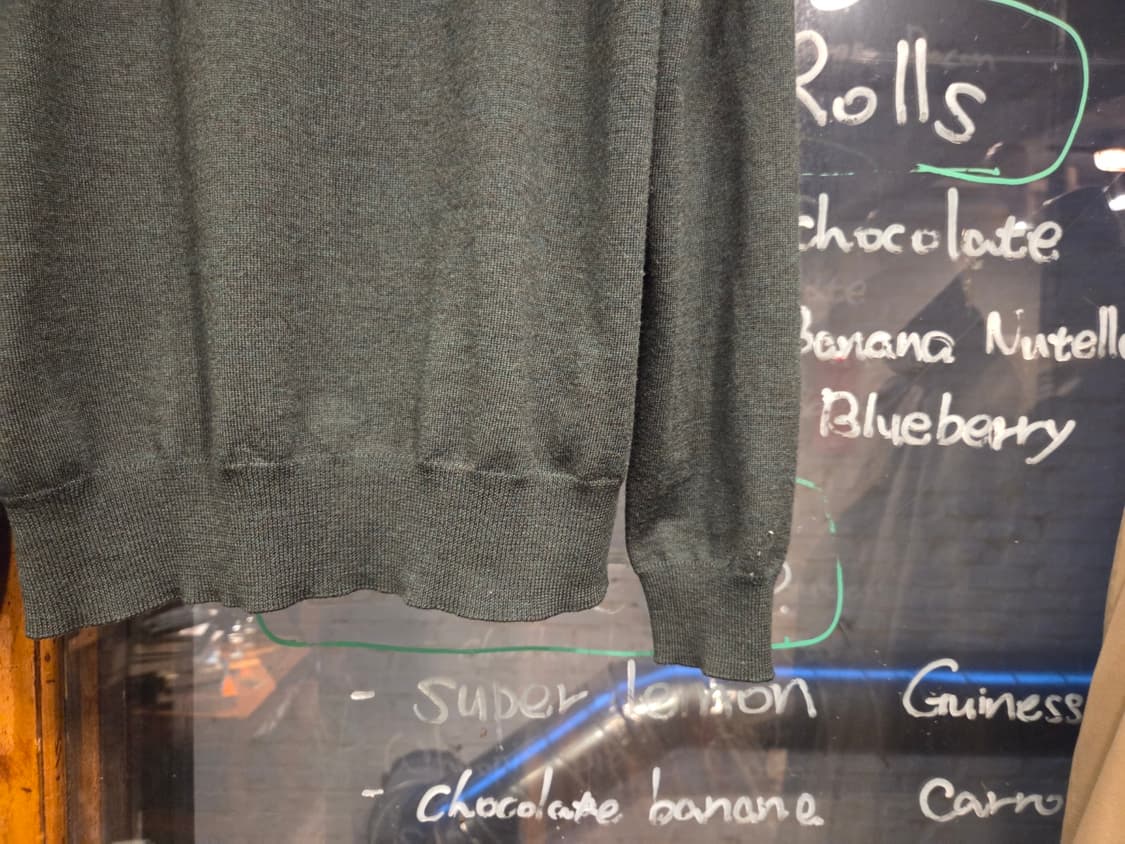 Rolls
chocolate
Banana Nutell
Blueberry
- super lemon Guiness
- Chocolate banana Carro